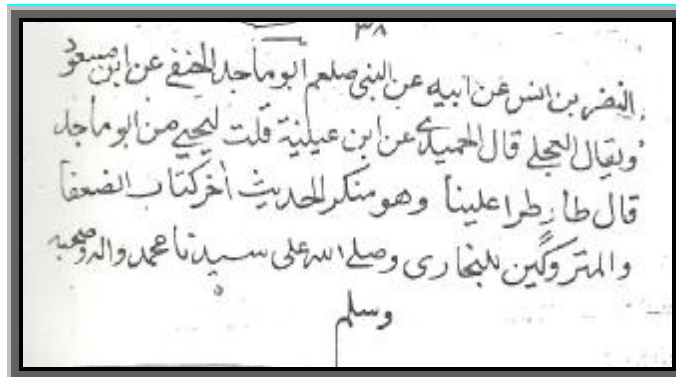 ٣٨
النضر بن انس عن ابيه عن النبي صلعم ابو ماجد الحنفي عن ابن مسعود
ويقال العجلي قال الحميدي عن ابن عيينة قلت ليحيى من ابو ماجد
قال طار طرا علينا وهو منكر الحديث آخر كتاب الضعفا
والمتروكين للبخارى وصلے الله على سيدنا محمد واله وصحبه
وسلم